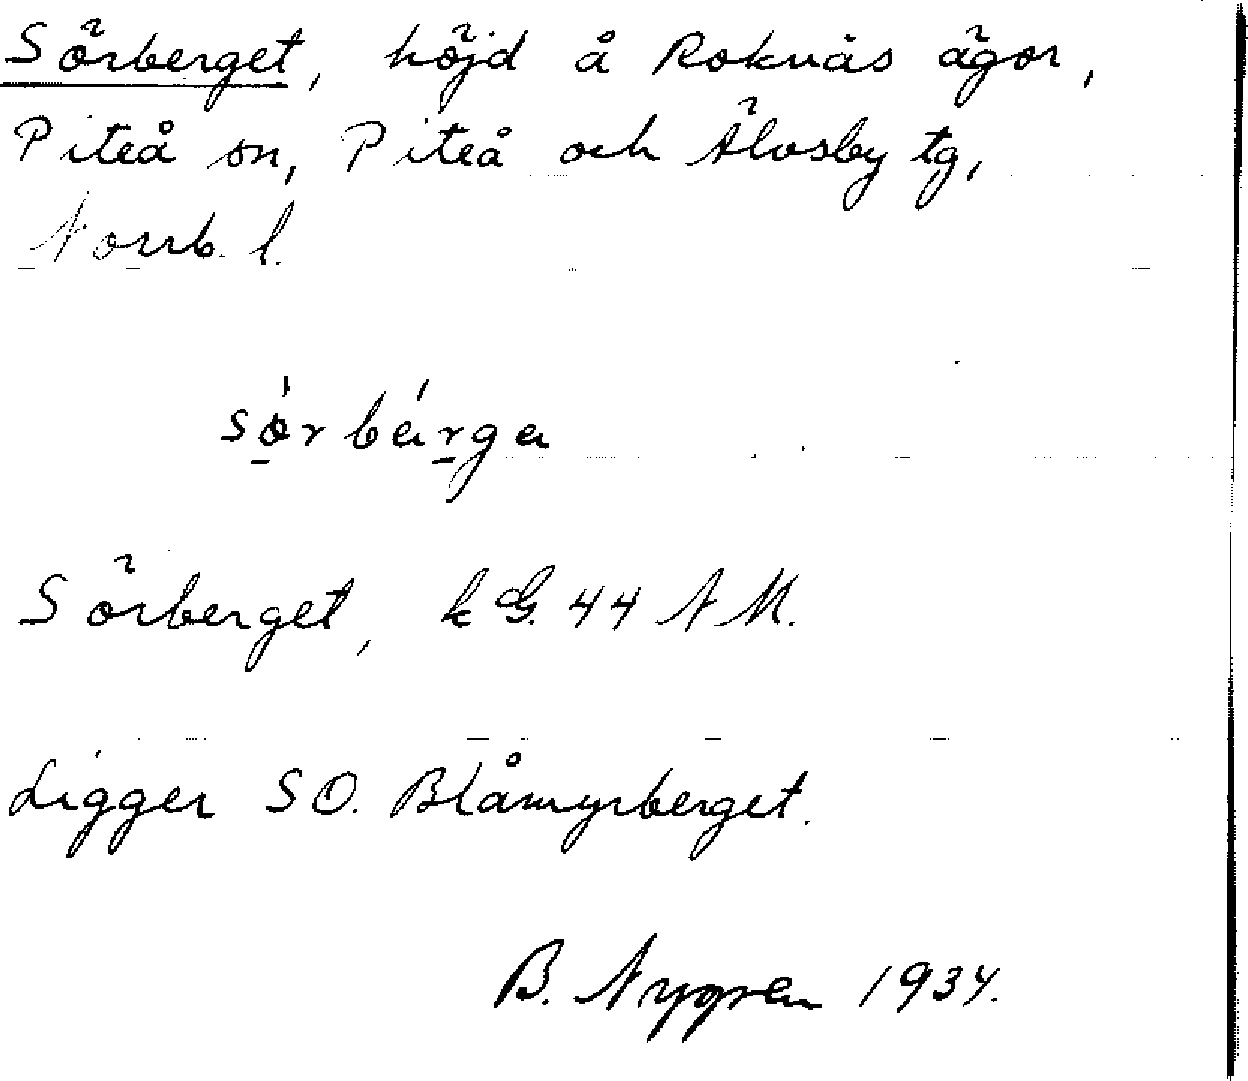 Sörberget, höjd å Roknäs ägor,
Piteå sn, Piteå och Älvsby tg,
Norrb. l.
sǿ̠rbäŕ̠ga
Sörberget, k G. 44 N M.
Ligger SO. Blåmyrberget.
B. Nygren 1934.